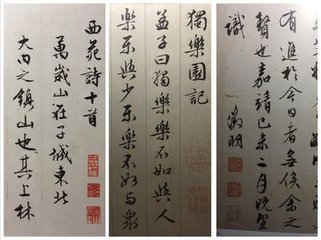 西苑詩十首
萬歲山在子城東北
大內之鎮山也其上林
獨樂園記
孟子曰獨樂樂不如與人
樂樂與少樂樂不如與衆
有進於今日者無俟余之
贅也嘉靖己未二月既望
徵明
識